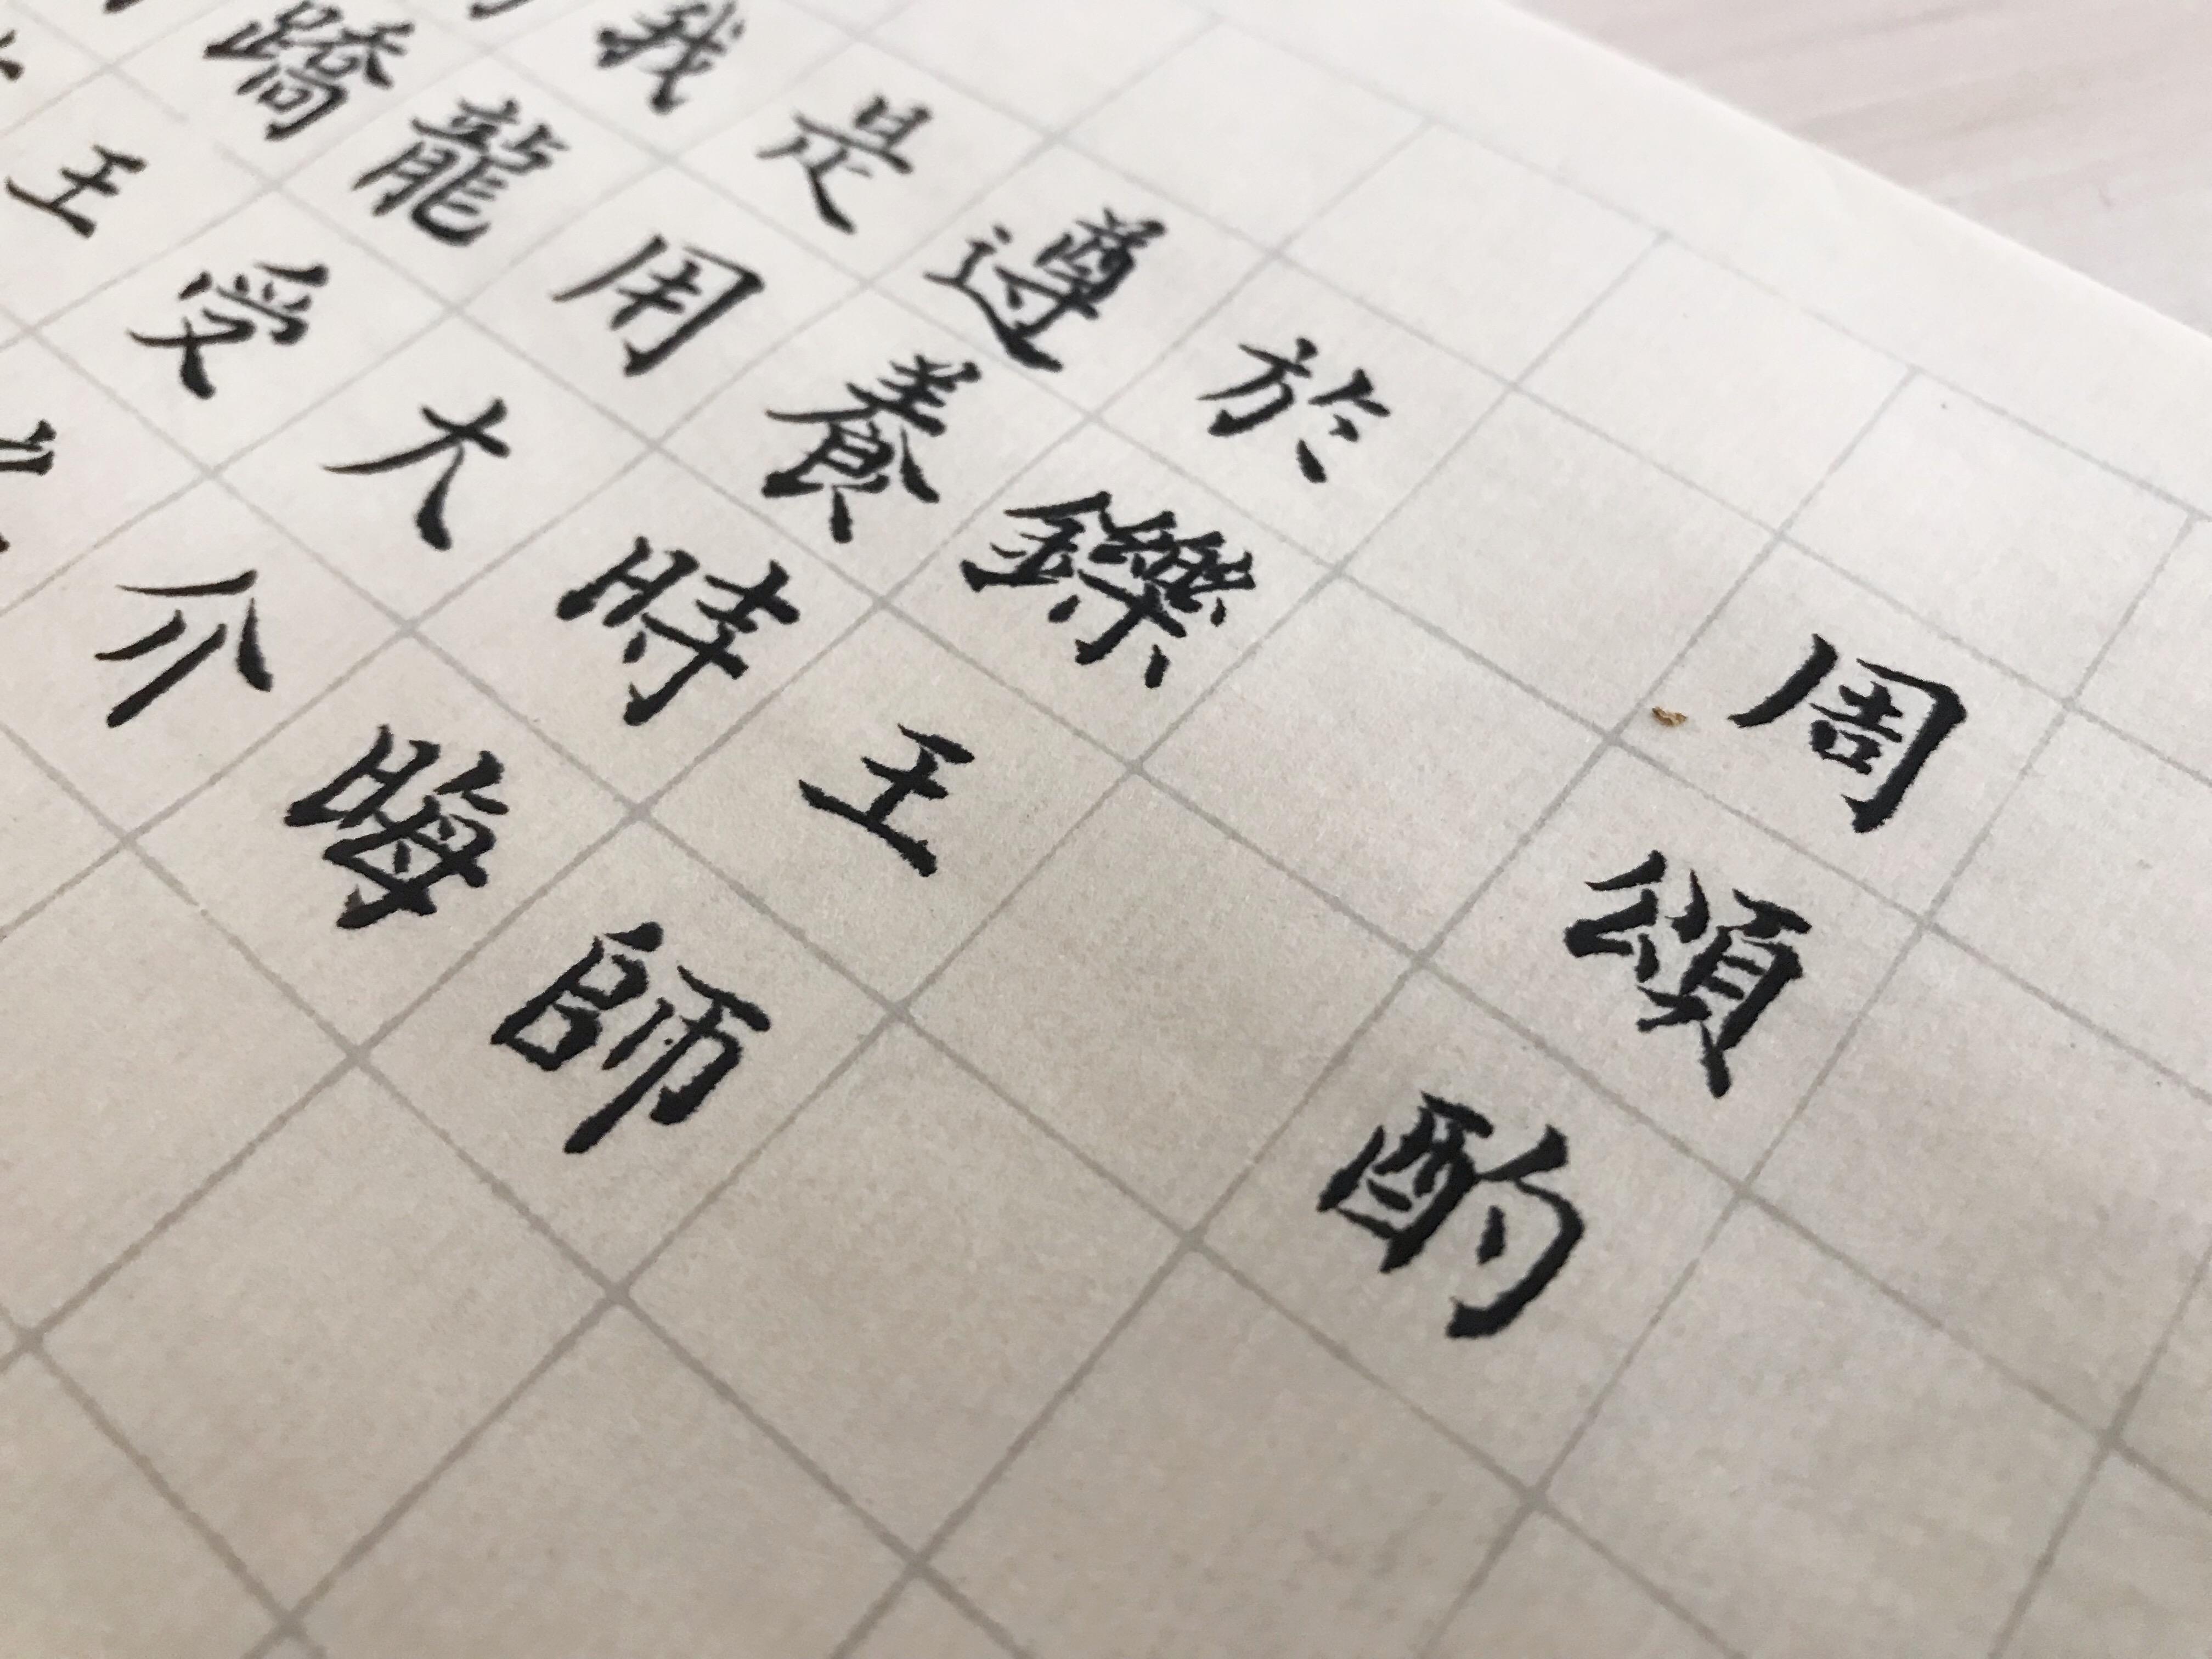 周頌酌
於鑠王師
遵養時晦
是用大介
我龍受
蹻王